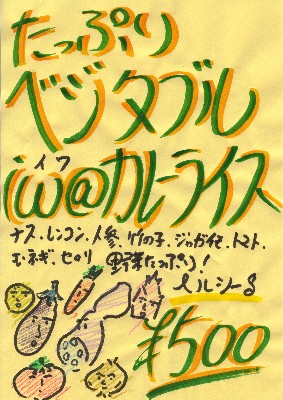 たっぷり
ベジタブル
iw@カレーライス
イワ
ナス、レンコン、人参、竹の子、ジャガ芋、トマト、
玉ネギ、セロリ 野菜たっぷり!
ヘルシー♪
¥500